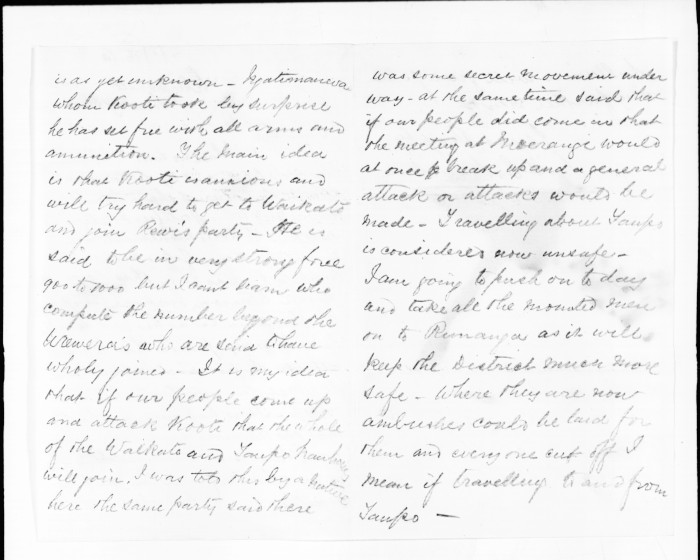 is as yet unknown -
whom Kooti took by surprise
he has set free with all arms and
amunition. The main idea
is that Kooti is anxious and
will try hard to get to Waikato
and join Rewis party - He is
said to be in very strong force
900 to 1000 but I cant learn who
compute the number beyond the
Urewera's who are said to have
wholy joined - It is my idea
that if our people come up
and attack Kooti that the whole
of the Waikato and Taupo
will join, I was told this by a native
here the same party said there
was some secret movement under
way - at the same time said that
if our people did come in that
the meeting at Moerangi would
at once break up and a general
attack or attacks would be
made - Travelling about Taupo
is considered now unsafe -
I am going to push on to day
and take all the mounted men
on to Runanga as it will
keep the District much more
safe - Where they are now
ambushes could be laid for
them and everyone cut off I
mean if travelling to and from
Taupo -